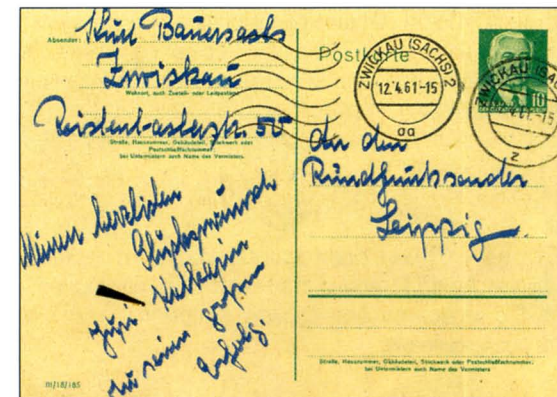 Absender: Kurt Bauersachs
Zwickau
Wohnort, auch Zustell- oder Leitpostamt
50
Straße, Hausnummer, Gebäudeteil, Stockwerk oder
Postschließfachnummer;
bei Untermietern auch Name des Vermieters
Meinen herzlichen
Glückwunsch
Jurii
zu seinem großen
Erfolg.
III/18/185
Postkarte
ZWICKAU (SACHS) 2
12.4.61-15
aa
10
ZWICKAU (SAC
4.61.-15
z
den
Rundfunksender
Leipzig
Straße, Hausnummer, Gebäudeteil, Stockwerk oder Postschließfachnummer;
bei Untermietern auch Name des Vermieters